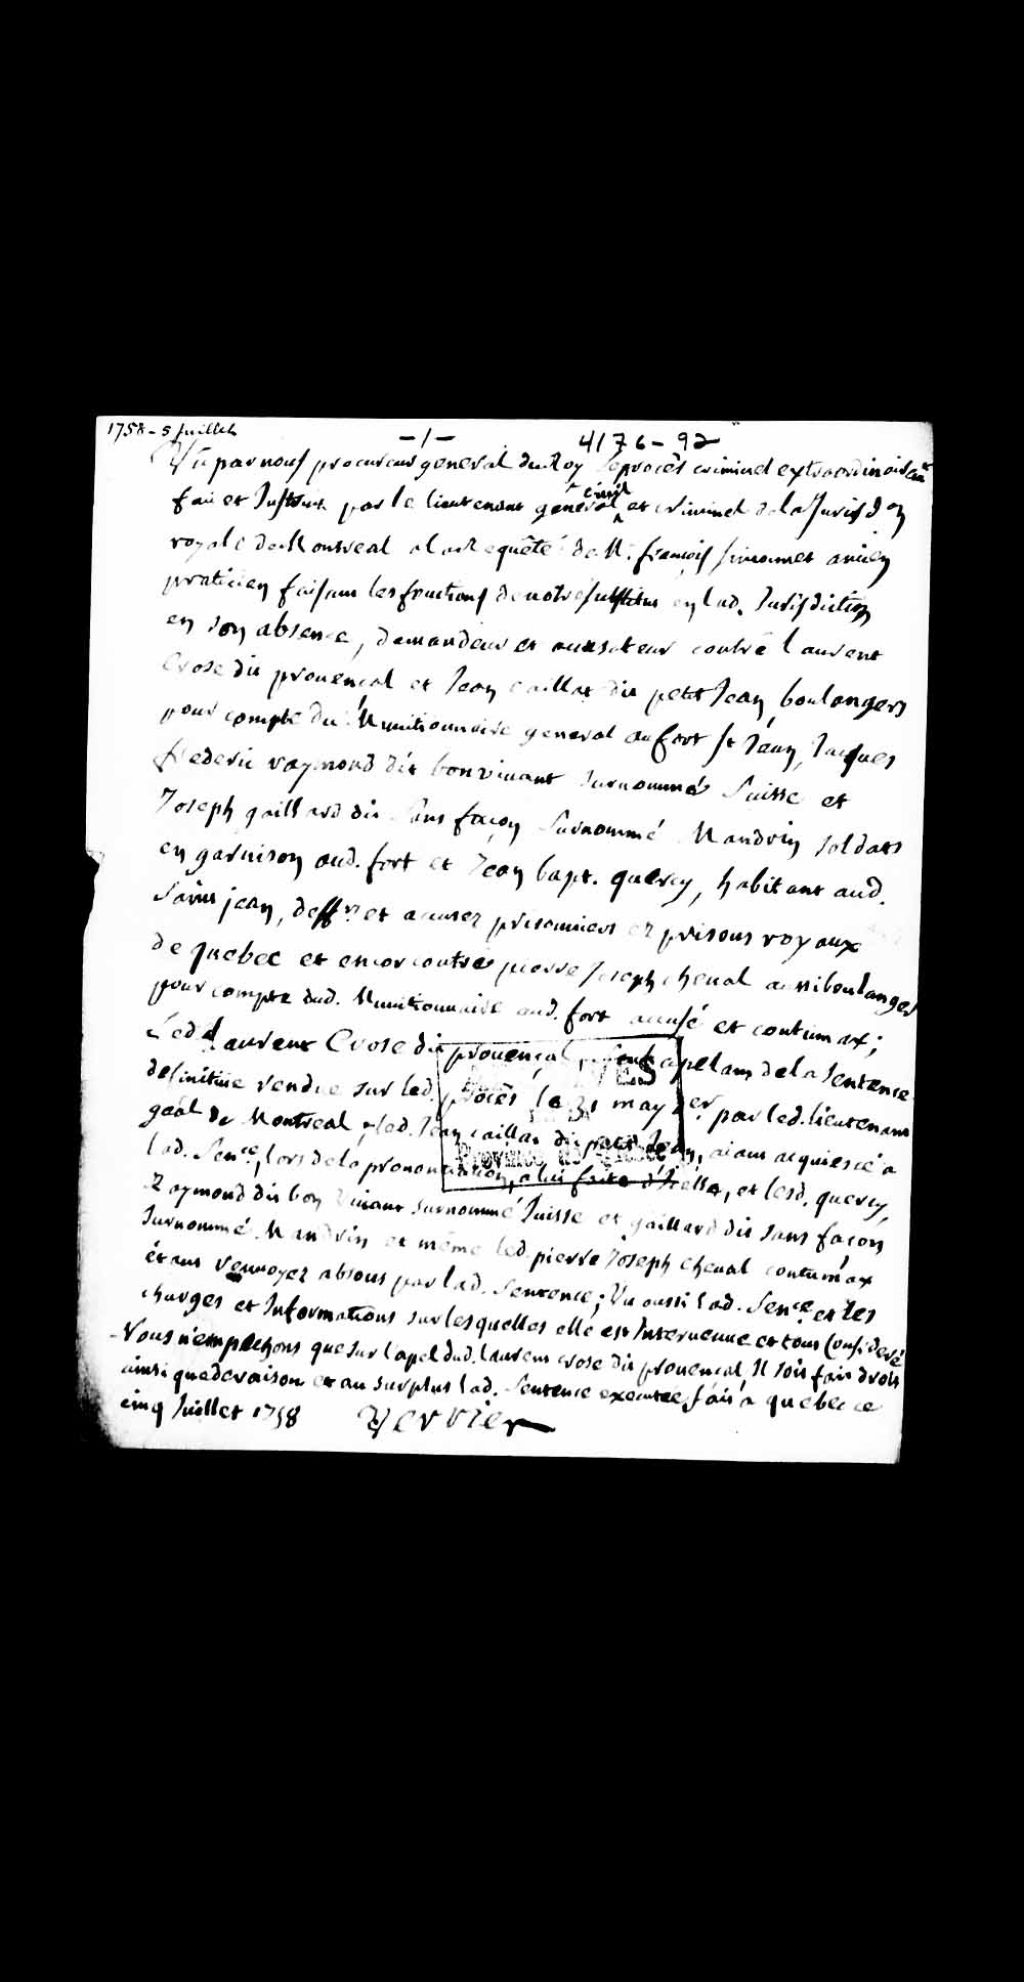 1758 - 5 Juillet
-1-
4176-92
Vû par nous procureur general du Roy le procès criminel extraordinairem.t
fait et Instruit par le lieutenant général civil et criminel de la Jurisd.on
royale de Montreal a la requête de M. françois simonnet ancien
praticien faisant les fonctions de notre substitut en lad. Jurisdiction
en son absence, demandeur et accusateur contre Laurent
Crose dit provençal et Jean caillat dit petit Jean, boulangers
pour compte du Munitionnaire general au fort St Jean, Jacques
frederic raymond dit bonvivant surnommé Suisse et
Joseph gaillard dit sans façon surnommé Mandrin soldats
en garnison aud. fort et Jean bapt. quercy, habitant aud.
Saint jean, deff.rs et accusez prisonniers ez prisons royaux
de quebec et encor contre pierre Joseph cheval aussi boulanger
pour compte dud. Munitionnaire aud. fort accusé et contumax;
Led. Laurent Crose dit provençal apelant de la Sentence
definitive rendue sur led. procès le 31 may d.er par led. lieutenant
gãal de Montreal, led. Jean caillat dit petit Jean, aiant acquiescé a
lad. Sen.ce, lors de la prononciation, a lui faite d'icelle, et lesd. quercy,
Raymond dit bon vivant surnommé Suisse et gaillard dit sans facon
surnommé Mandrin et même led. pierre Joseph cheval contumax
étant renvoyez absous par lad. Sentence; Vu aussi lad. Sen.ce et les
charges et Informations sur lesquelles elle est Intervenue et tout Consideré
Nous n'empechons que sur l'apel dud. Laurent crose dit provençal, Il soit fait droit
ainsi que de raison et au surplus lad. Sentence executée, fait a quebec ce
cinq Juillet 1758 Verrier